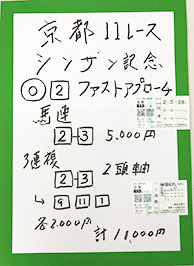 京都11レース
シンザン記念
◎2 ファストアプローチ
馬連
2-3 5,000円
3連複 2頭軸
2-3
↳ 9 11 1
各2,000円 計11,000円